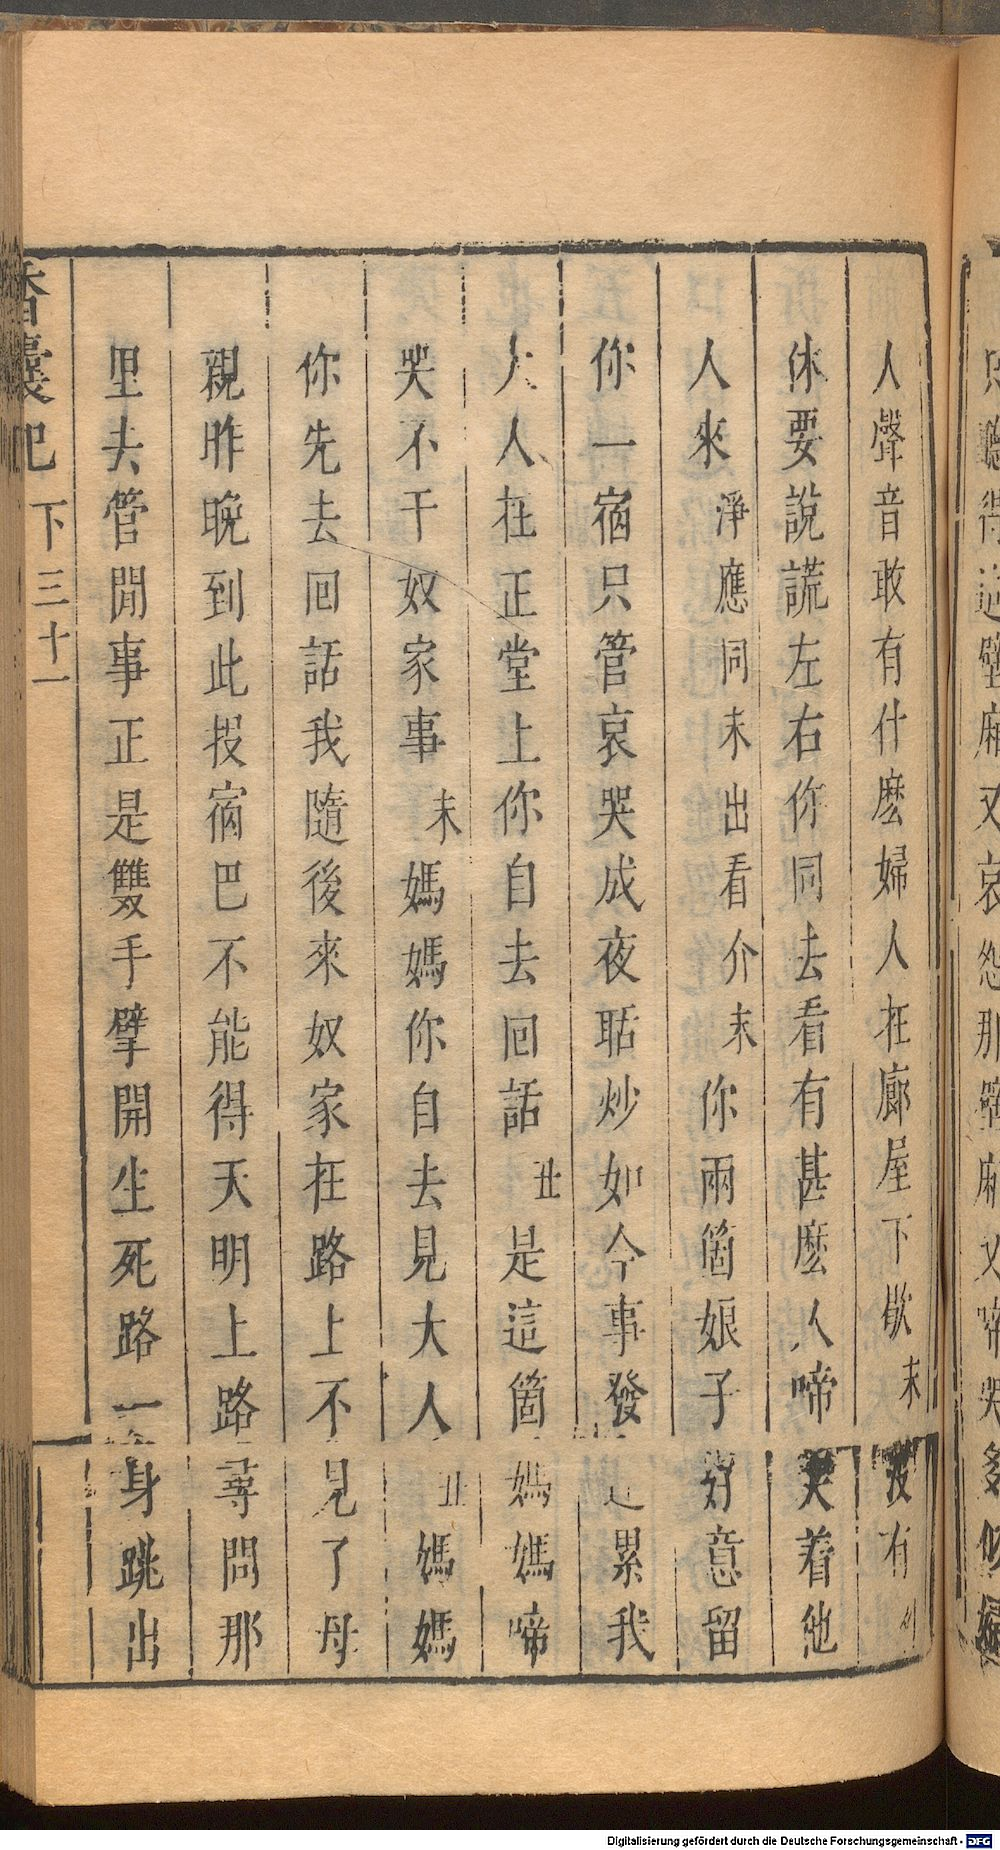 人聲音敢有什麽婦人在廊屋下歇末没有
休要說謊左右你同去看有甚麽人啼哭着他
人來淨應同末出看介末你兩箇娘子好意留
你一宿只管哀哭成夜聒炒如今事發連累我
大人在正堂上你自去回話丑是這箇媽媽啼
哭不干奴家事末媽媽你自去見大人丑媽媽
你先去回話我隨後來奴家在路上不見了母
親昨晚到此投宿巴不能得天明上路尋問那
里去管閒事正是雙手擘開生死路一身跳出
香囊記 下 三十一
Digitalisierung gefördert durch die Deutsche Forschungsgemeinschaft - DFG